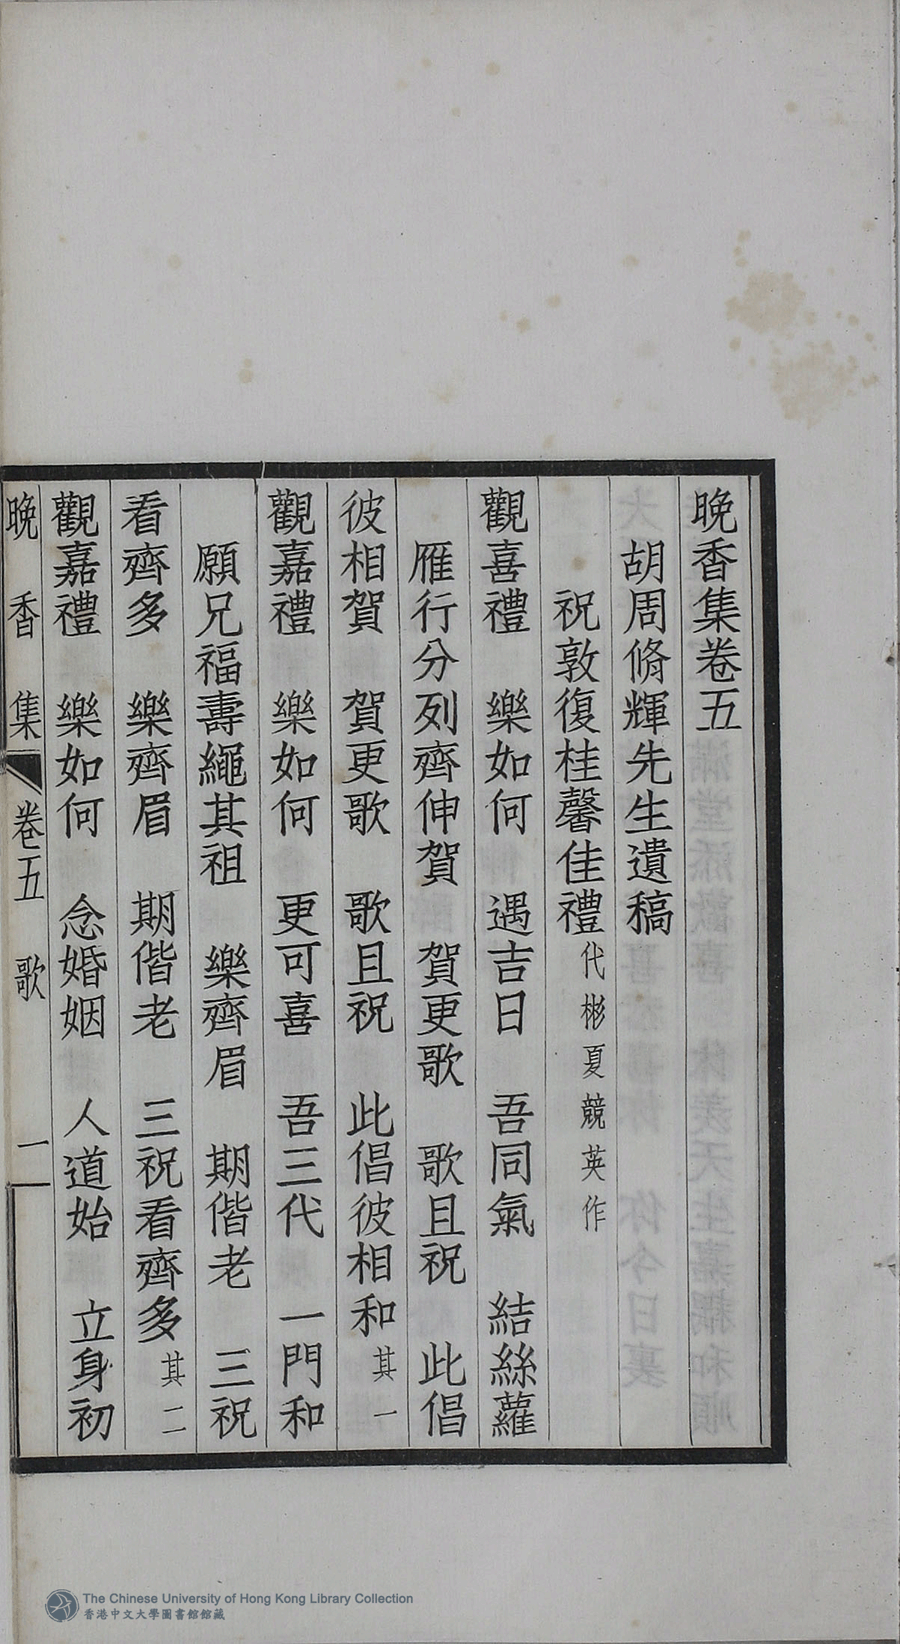 晚香集卷五
胡周脩輝先生遺稿
祝敦復桂馨佳禮代彬夏競英作
觀喜禮　樂如何　遇吉日　吾同氣　結絲蘿
雁行分列齊伸賀　賀更歌　歌且祝　此倡
彼相賀　賀更歌　歌且祝　此倡彼相和其一
觀嘉禮　樂如何　更可喜　吾三代　一門和
願兄福壽繩其祖　樂齊眉　期偕老　三祝
看齊多　樂齊眉　期偕老　三祝看齊多其二
觀嘉禮　樂如何　念婚姻　人道始　立身初
晚香集　卷五　歌　一
The Chinese University of Hong Kong Library Collection
香港中文大學圖書館館藏